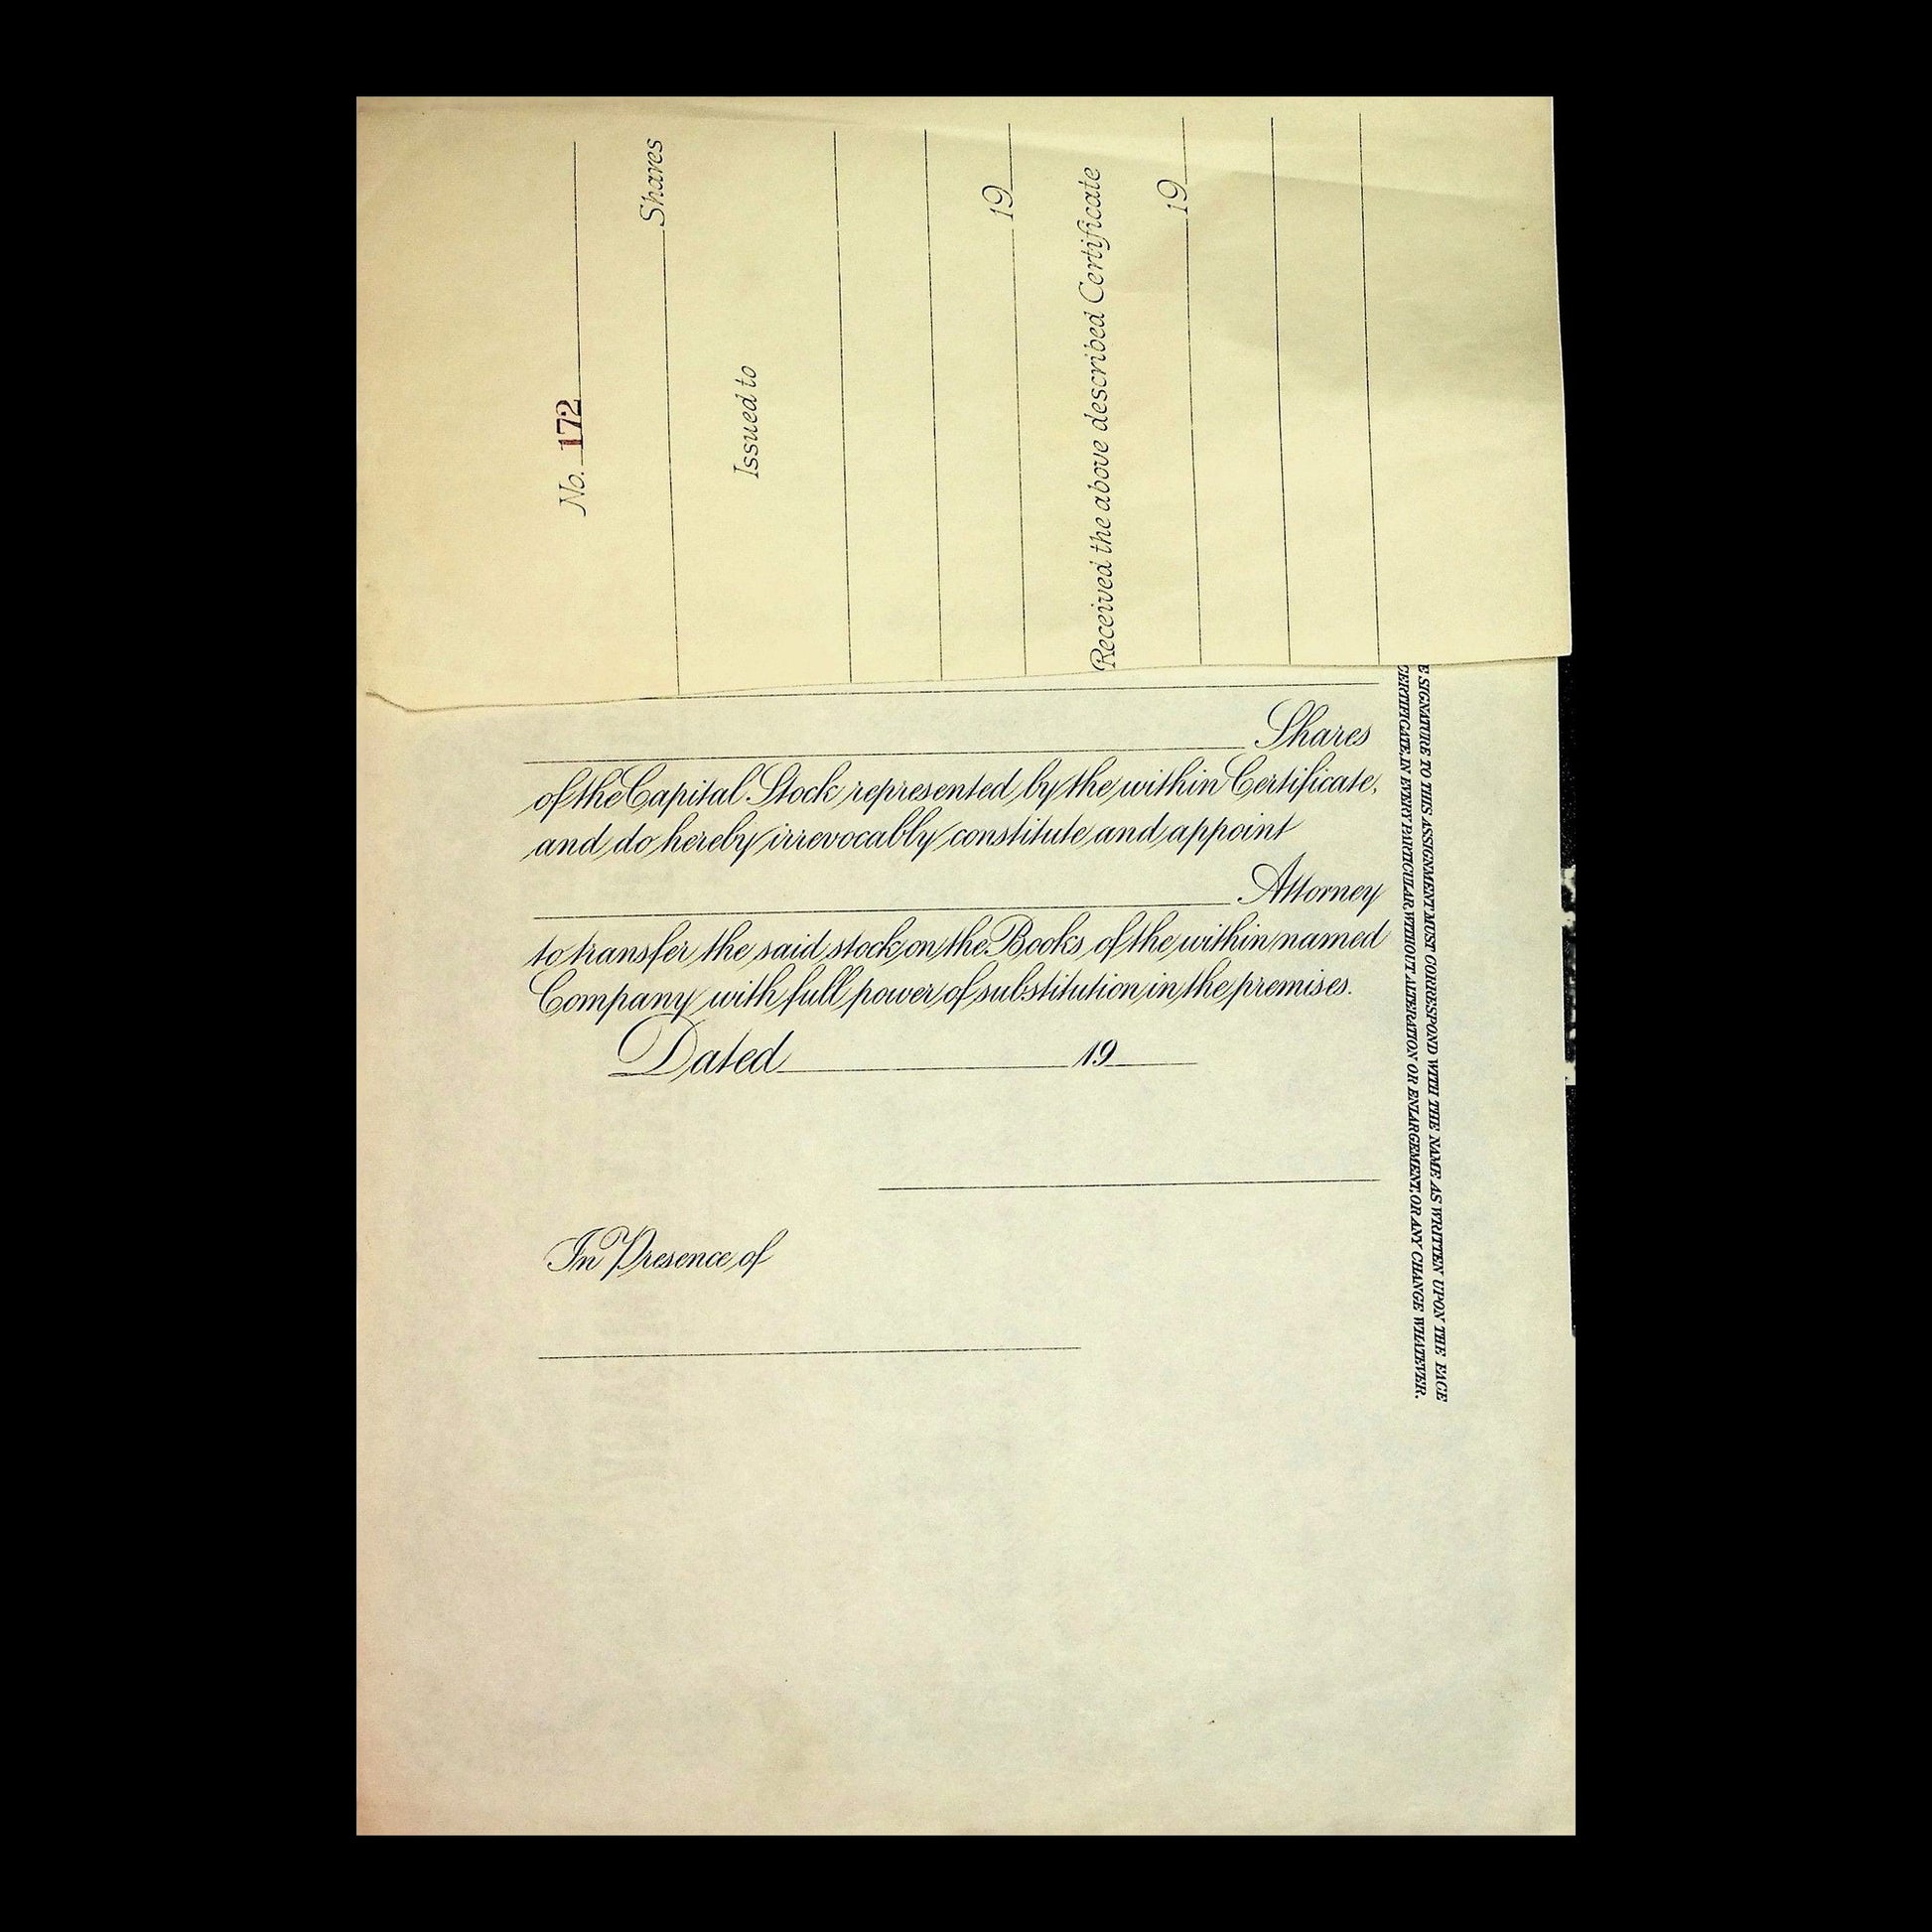 No. 172
Shares
Issued to
19
Received the above described Certificate
19
Shares
of the Capital Stock represented by the within Certificate,
and do hereby irrevocably constitute and appoint
Attorney
to transfer the said stock on the Books of the within named
Company with full power of substitution in the premises.
Dated 19
In Presence of
E SIGNATURE TO THIS ASSIGNMENT MUST CORRESPOND WITH THE NAME AS WRITTEN UPON THE FACE
CERTIFICATE, IN EVERY PARTICULAR, WITHOUT ALTERATION OR ENLARGEMENT, OR ANY CHANGE WHATEVER.